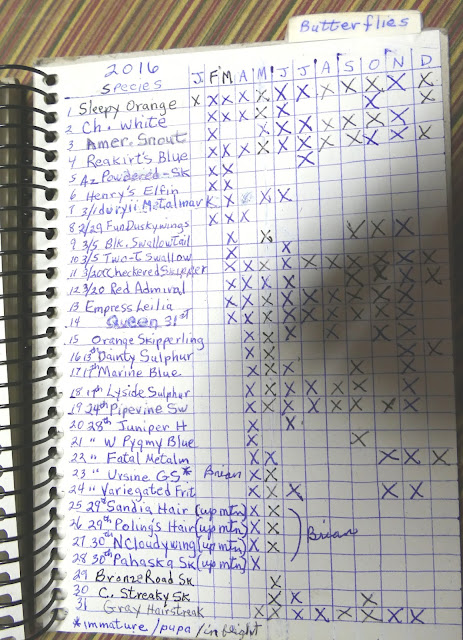 Butterflies
2016
Species J F M A M J J A S O N D
1 Sleepy Orange X X X X X X X X X X X X
2 Ch. White
3 Amer. Snout
4 Reakirt's Blue
5 Az Powdered-Sk
6 Henry's Elfin
7 Metalmark
8 2/29 Fun Duskywings
9 3/5 Blk. Swallowtail
10 3/5 Two-T Swallow
11 3/20 Checkered Skipper
12 3/20 Red Admiral
13 Empress Leilia
14 Queen 31st
15 Orange Skipperling
16 13th Dainty Sulphur
17 17th Marine Blue
18 19th Lyside Sulphur
19 24th Pipevine Sw
20 28th Juniper H
21 " W Pygmy Blue
22 " Fatal Metalm
23 " Ursine GS* Brian
24 " Variegated Frit
25 29th Sandia Hair (up mtn) X X
26 29th Poling's Hair (up mtn) X X
27 30th N Cloudywing (up mtn) X X Brian
28 30th Pahaska Sk (up mtn) X
29 Bronze Road Sk X
30 C. Streaky Sk
31 Gray Hairstreak
*immature/pupa/in flight